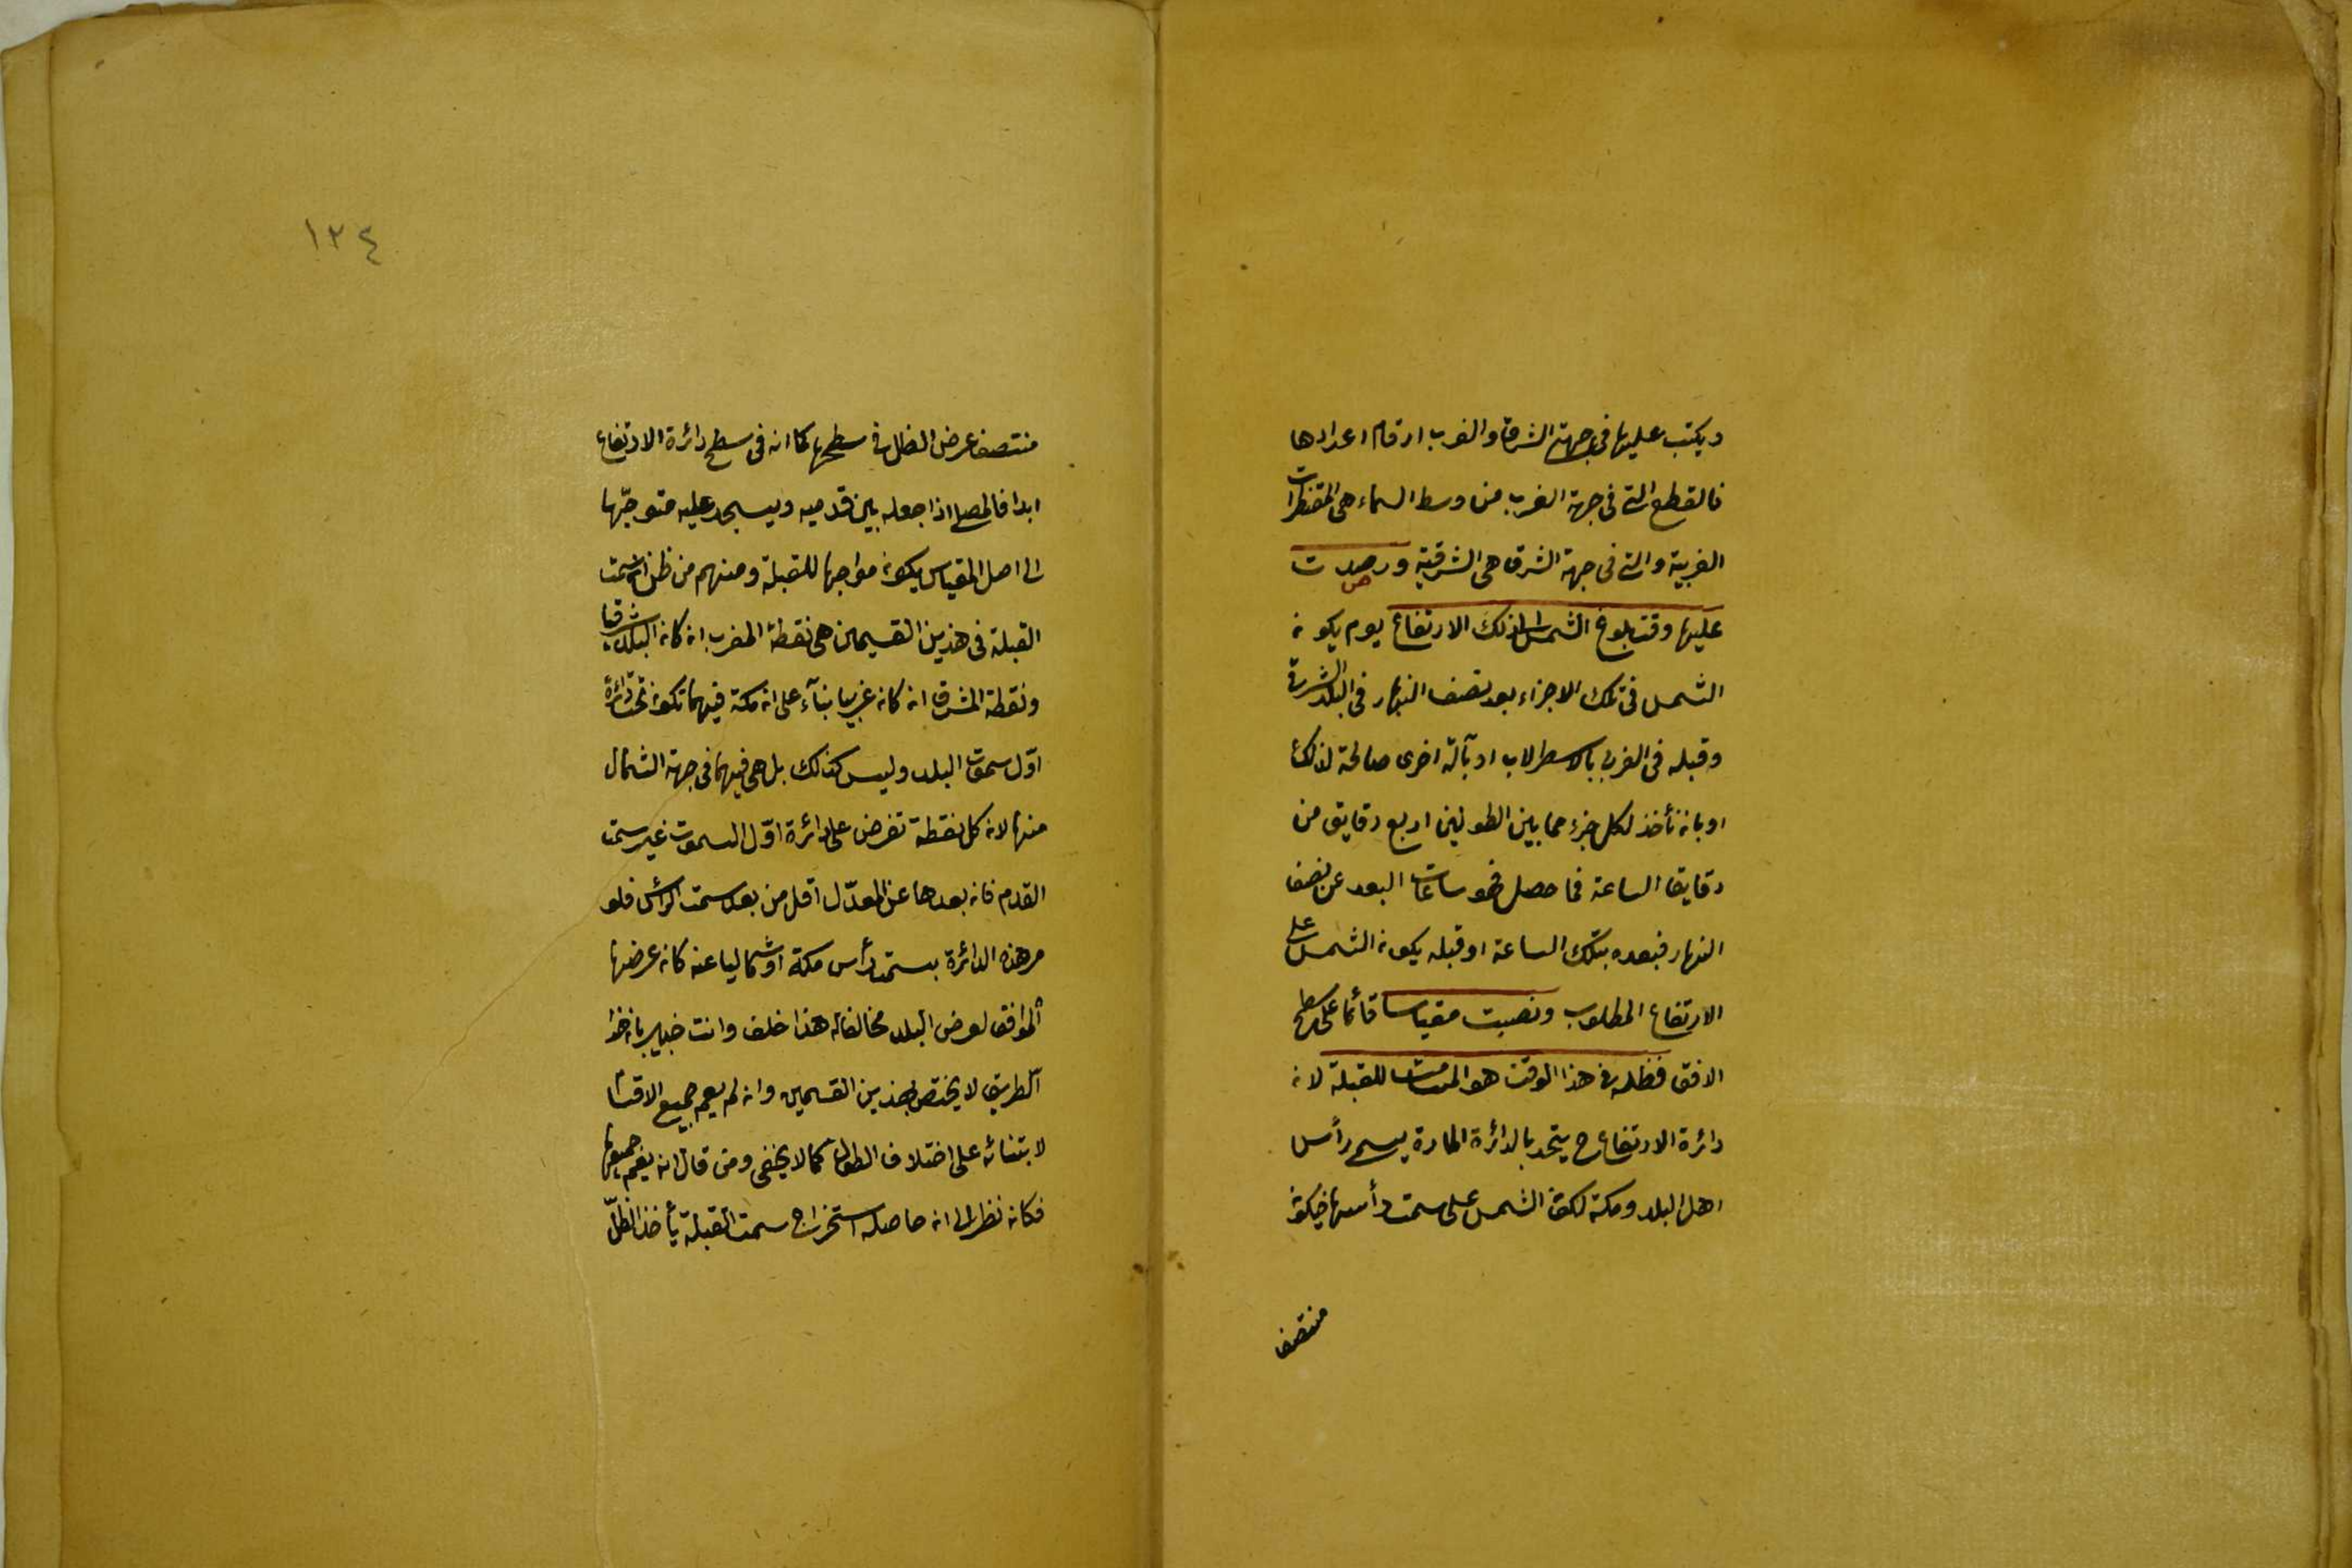 ويكتب عليها في جهتي الشرق والغرب ارقام اعدادها
فالقطع التي في جهة الغرب من وسط السماء هي المقنطرات
الغربية والتي في جهة الشرق هي الشرقية ورصدت
عليها وقت بلوغ الشمس الى ذلك الارتفاع يوم يكون
الشمس في تلك الاجزاء بعد نصف النهار في البلد الشرقي
وقبله في الغربي بالاسطرلاب او بآلة اخرى صالحة لذلك
او بان نأخذ لكل جزء مما بين الطولين اربع دقايق من
دقايق الساعة فما حصل فهو ساعات البعد عن نصف
النهار فبعده بتلك الساعة او قبله يكون الشمس على
الارتفاع المطلوب ونصبت مقياسا قائما على سطح
الافق فظله في هذا الوقت هو المسامت للقبلة لان
دائرة الارتفاع ح يتحد بالدائرة المارة بسمتي رأس
اهل البلد ومكة لكون الشمس على سمت رأسها فيكون
منتصف
١٣٤
منتصف عرض الظل في سطحها كما انه في سطح دائرة الارتفاع
ابدا فالمصلي اذا جعله بين قدميه ويسجد عليه متوجّها
الى اصل المقياس يكون مواجها للقبلة ومنهم من ظن ان سمت
القبلة في هذين القسمين هي نقطة المغرب ان كان البلد شرقيا
ونقطة المشرق ان كان غربيا بناء على ان مكة فيهما تكون تحت دائرة
اوّل سموت البلد وليس كذلك بل هي فيهما في جهة الشمال
منها لان كل نقطة تفرض على دائرة اوّل السموت غير سمت
القدم فان بعدها عن المعدّل اقل من بعد سمت الرأس فلو
مر هذه الدائرة بسمت رأس مكة او شماليا عنه كان عرضها
الموافق لعرض البلد مخالفا له هذا خلف وانت خبير بان هذا
الطريق لا يختص بهذين القسمين وان لم يعم جميع الاقسام
لابتنائه على اختلاف الطول كما لا يخفى ومن قال انه يعم جميعها
فكانه نظر الى ان حاصله استخراج سمت القبلة بأخذ الظلّ